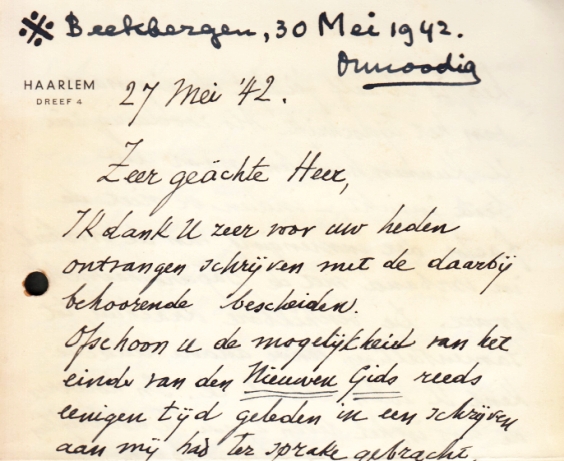 Beekbergen, 30 Mei 1942.
Onnoodig
HAARLEM
DREEF 4
27 Mei '42.
Zeer geächte Heer,
Ik dank U zeer voor uw heden
ontvangen schrijven met de daarbij
behoorende bescheiden.
Ofschoon u de mogelijkheid van het
einde van den Nieuwen Gids reeds
eenigen tijd geleden in een schrijven
aan mij had ter sprake gebracht,